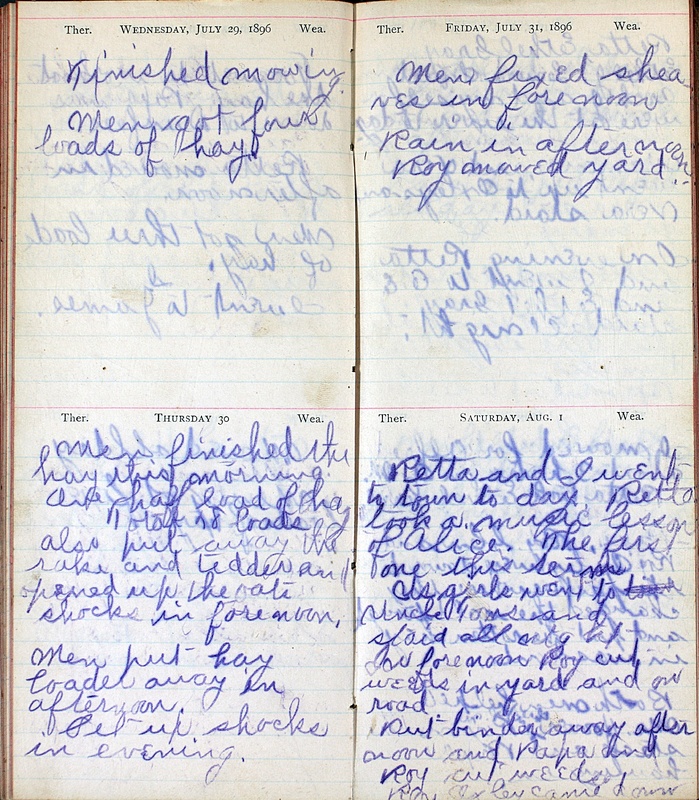 Ther. WEDNESDAY, JULY 29, 1896 Wea.
Finished mowing
Men got four
loads of hay.
Ther. THURSDAY 30 Wea.
Men finished the
hay this morning.
half load of hay
Total 78 loads
also put away the
rake and tedder and
opened up the oats
shocks in forenoon.
Men put hay
loader away in
afternoon.
Set up shocks
in evening.
Ther. FRIDAY, JULY 31, 1896 Wea.
Men fixed shea
ves in forenoon
Rain in afternoon
Roy mowed yard.
Ther. SATURDAY, AUG. 1 Wea.
Retta and I went
to town to day. Retta
took a music lesson
of Alice. The first
one this term
Us girls went to
Uncle Toms and
staid all night
In forenoon Roy cut
weeds in yard and on
road.
Put binder away after
noon and Papa and
Roy cut weeds.
Roy came down